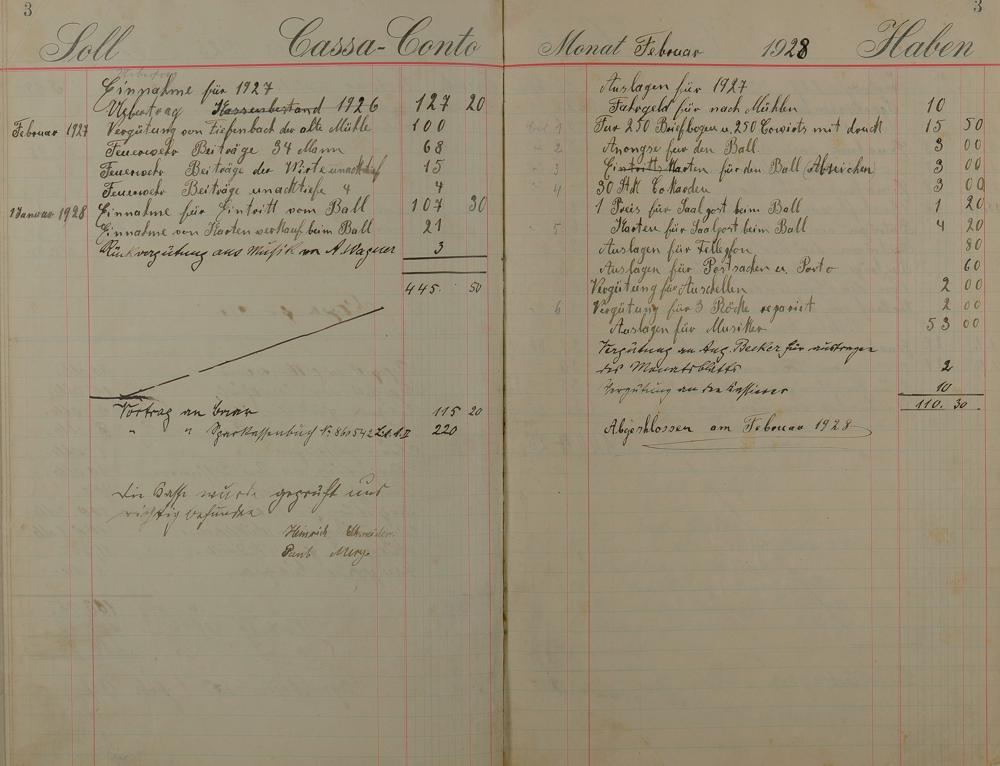 3
Soll Cassa-Conto
Einnahme für 1927
Uebertrag Kassenbestand 1926 127 20
Februar 1927 Vergütung von Tiefenbach der alte Mühle 100
Feuerwehr Beiträge 34 Mann 68
Feuerwehr Beiträge der Wirte unacktief 15
Feuerwehr Beiträge unacktiefe 4 4
1 Januar 1928 Einnahme für Eintritt vom Ball 107 30
Einnahme von Karten verkauf beim Ball 21
Rückvergütung aus Musik von A. Wagner 3
445. 50
Vortrag an baar 115 20
" " Sparkassenbuch No 860542 220
Die Kasse wurde geprüft und
richtig befunden
Heinrich Schneider
Paul
3
Monat Februar 1928 Haben
Auslagen für 1927
Fahrgeld für nach Mühlen 10
1 Für 250 Briefbogen u. 250 Cowirts mit druck 15 50
" 2 Anongse für den Ball. 3 00
" 3 Eintritts Karten für den Ball Abzeichen 3 00
" 4 30 Stk Cokarden 3 00
1 Preis für Saalpost beim Ball 1 20
" 5 Karten für Saalpost beim Ball 4 20
Auslagen für Tellefon 80
Auslagen für Postsachen u. Porto 60
Vergütung für Ausschellen 2 00
" 6 Vergütung für 3 Röcke repariert 2 00
Auslagen für Musiker 53 00
Vergütung an Aug. Becker für austragen
des Monatsblatts 2
Vergütung an den Kassierer 10
110. 30
Abgeschlossen am Februar 1928